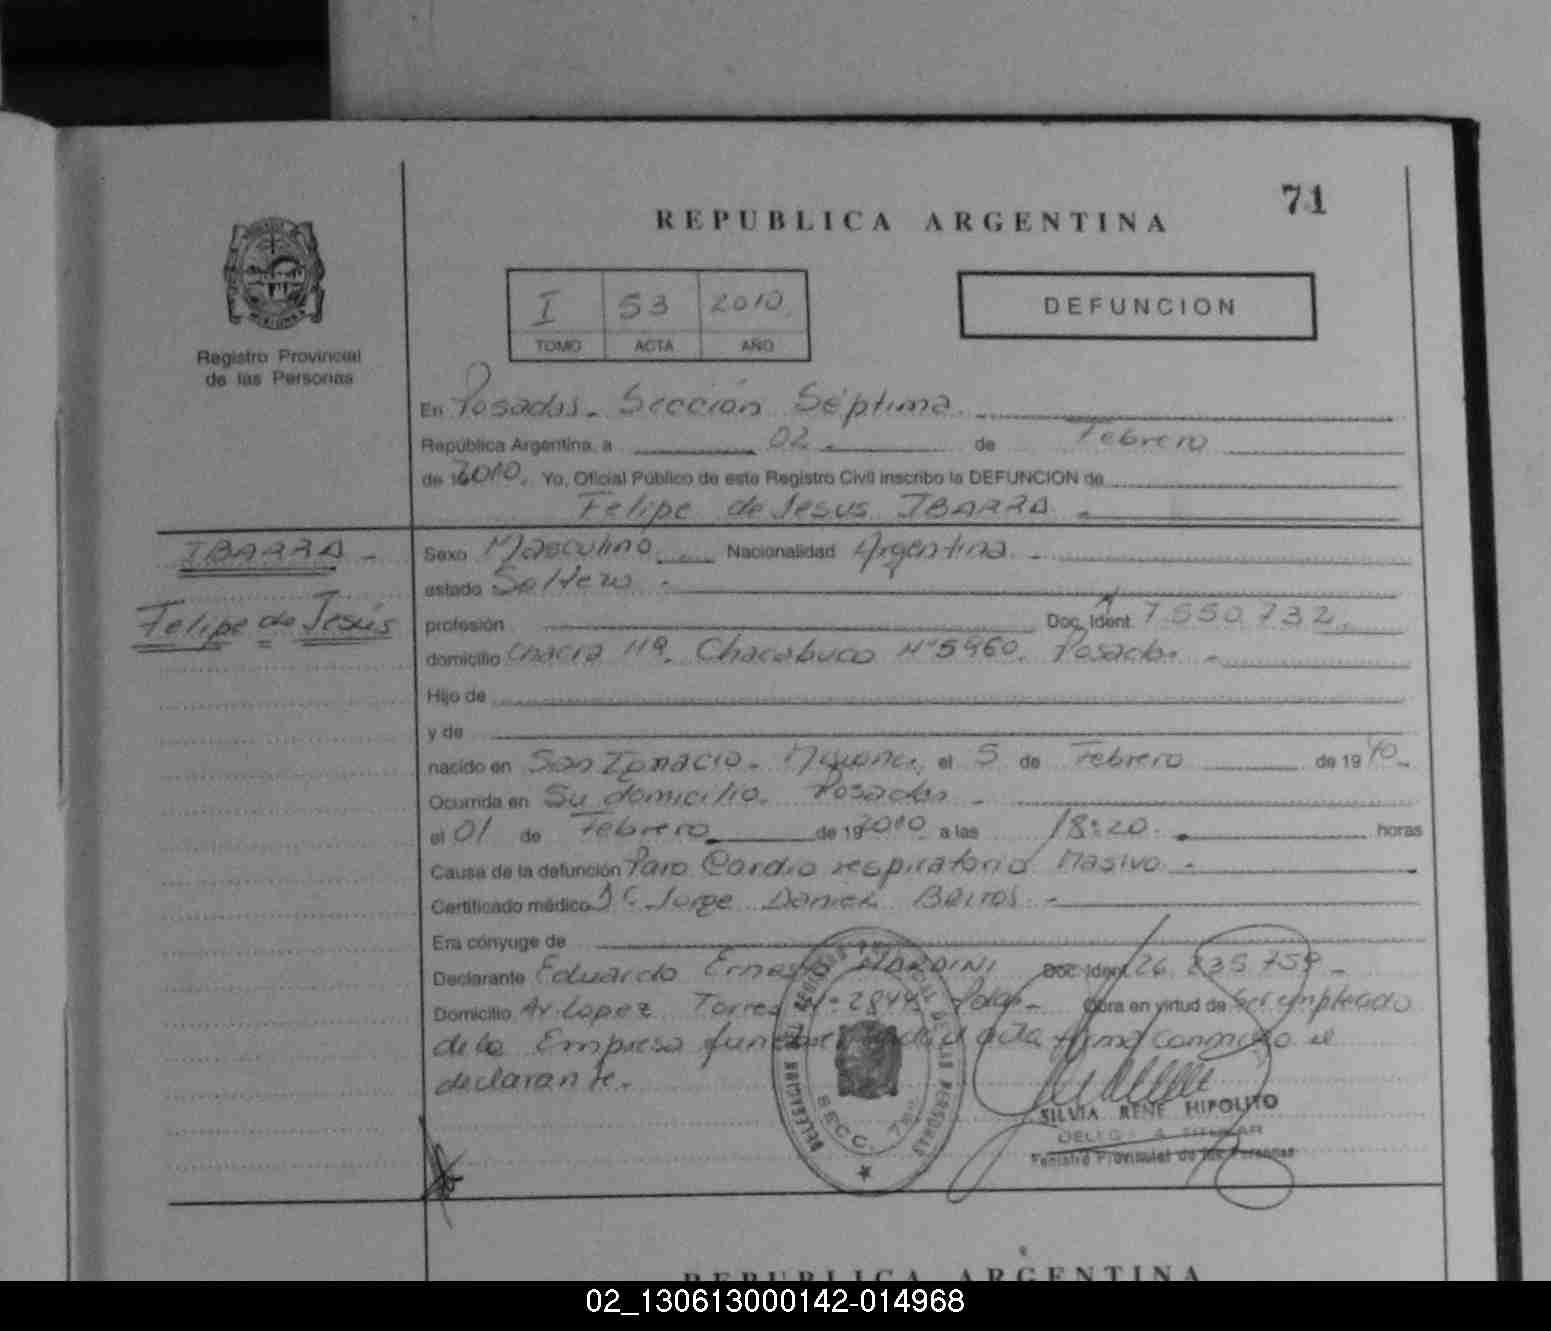 71
REPUBLICA ARGENTINA
I 53 2010
TOMO ACTA AÑO
DEFUNCION
Registro Provincial
de las Personas
En Posadas - Sección Séptima
República Argentina, a 02 de Febrero
de 2010. Yo, Oficial Público de este Registro Civil inscribo la DEFUNCION de
Felipe de Jesus IBARRA
IBARRA -
Felipe de Jesús
Sexo Masculino Nacionalidad Argentina
estado Soltero
profesión Doc. Ident. 7.550.732
domicilio Chacra 119. Chacabuco N° 5960. Posadas
Hijo de
y de
nacido en San Ignacio - Misiones, el 5 de Febrero de 1940
Ocurrida en Su domicilio. Posadas
el 01 de Febrero de 2010 a las 18:20 horas
Causa de la defunción Paro Cardio respiratorio Masivo
Certificado médico Jorge Daniel
Era cónyuge de
Declarante Eduardo Ernesto Doc. Ident. 26.835.759
Domicilio Av. Lopez Torres 2844 Obra en virtud de Ser empleado
de la Empresa acta firma conmigo el
declarante.
SECC. 7
SILVIA RENE HIPOLITO
DELEGADA TITULAR
Registro Provincial de las Personas
REPUBLICA ARGENTINA
02_130613000142-014968